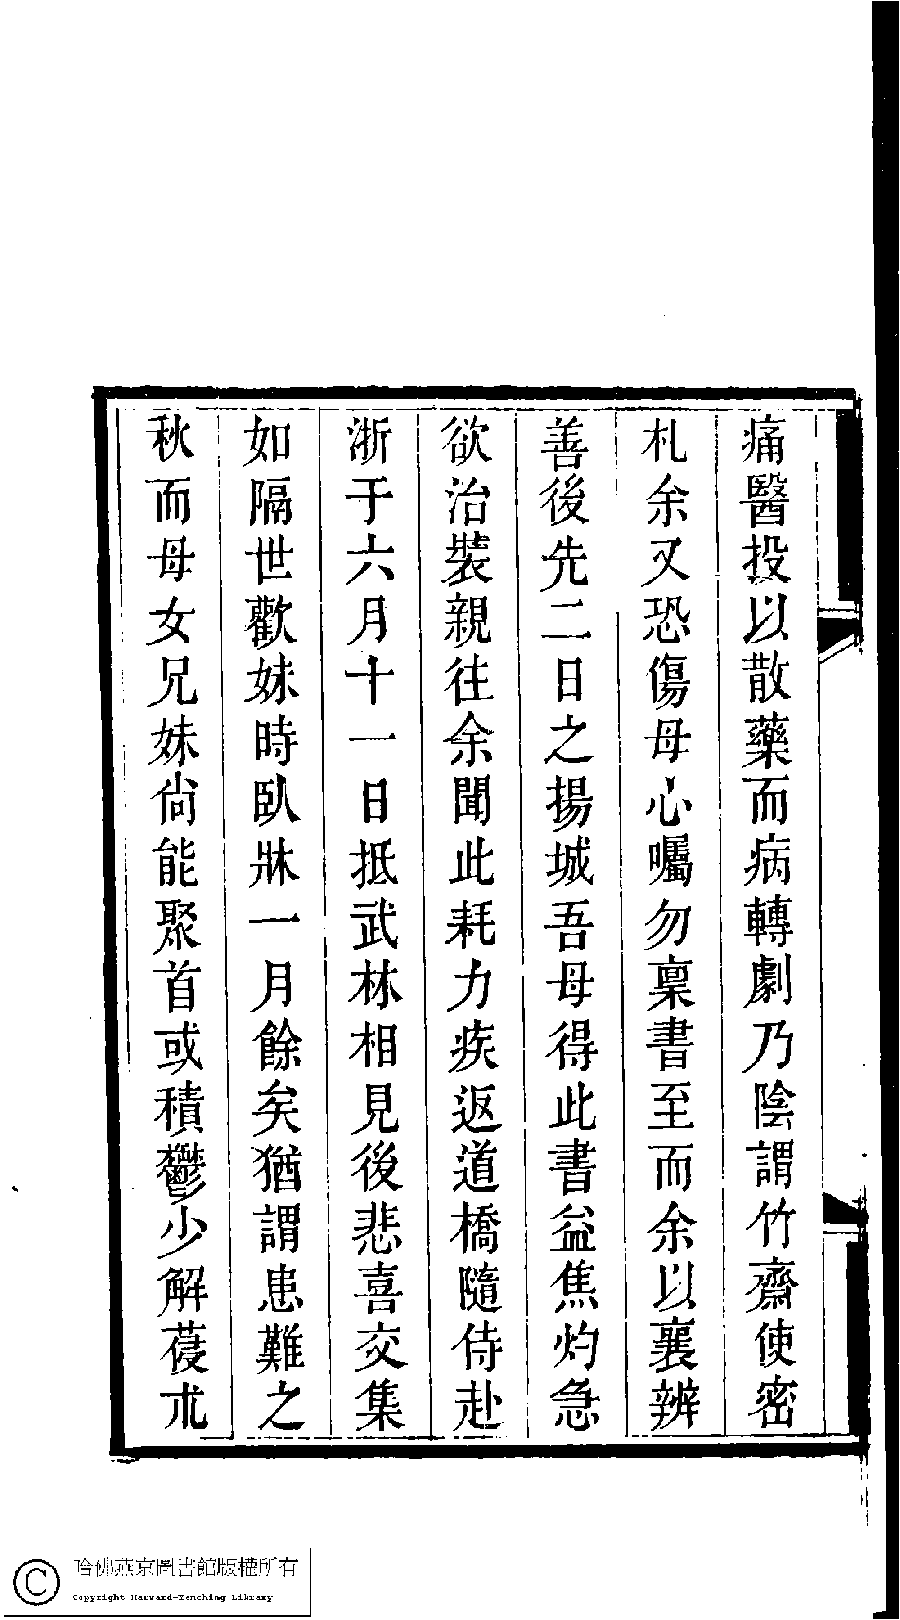 痛醫投以散藥而病轉劇乃陰謂竹齋使密
札余又恐傷母心囑勿稟書至而余以襄辦
善後先二日之揚城吾母得此書益焦灼急
欲治裝親往余聞此耗力疾返道橋隨侍赴
浙于六月十一日抵武林相見後悲喜交集
如隔世歡妹時臥牀一月餘矣猶謂患難之
秋而母女兄妹尙能聚首或積鬱少解葠朮
哈佛燕京圖書館版權所有
Copyright Harvard-Yenching Library